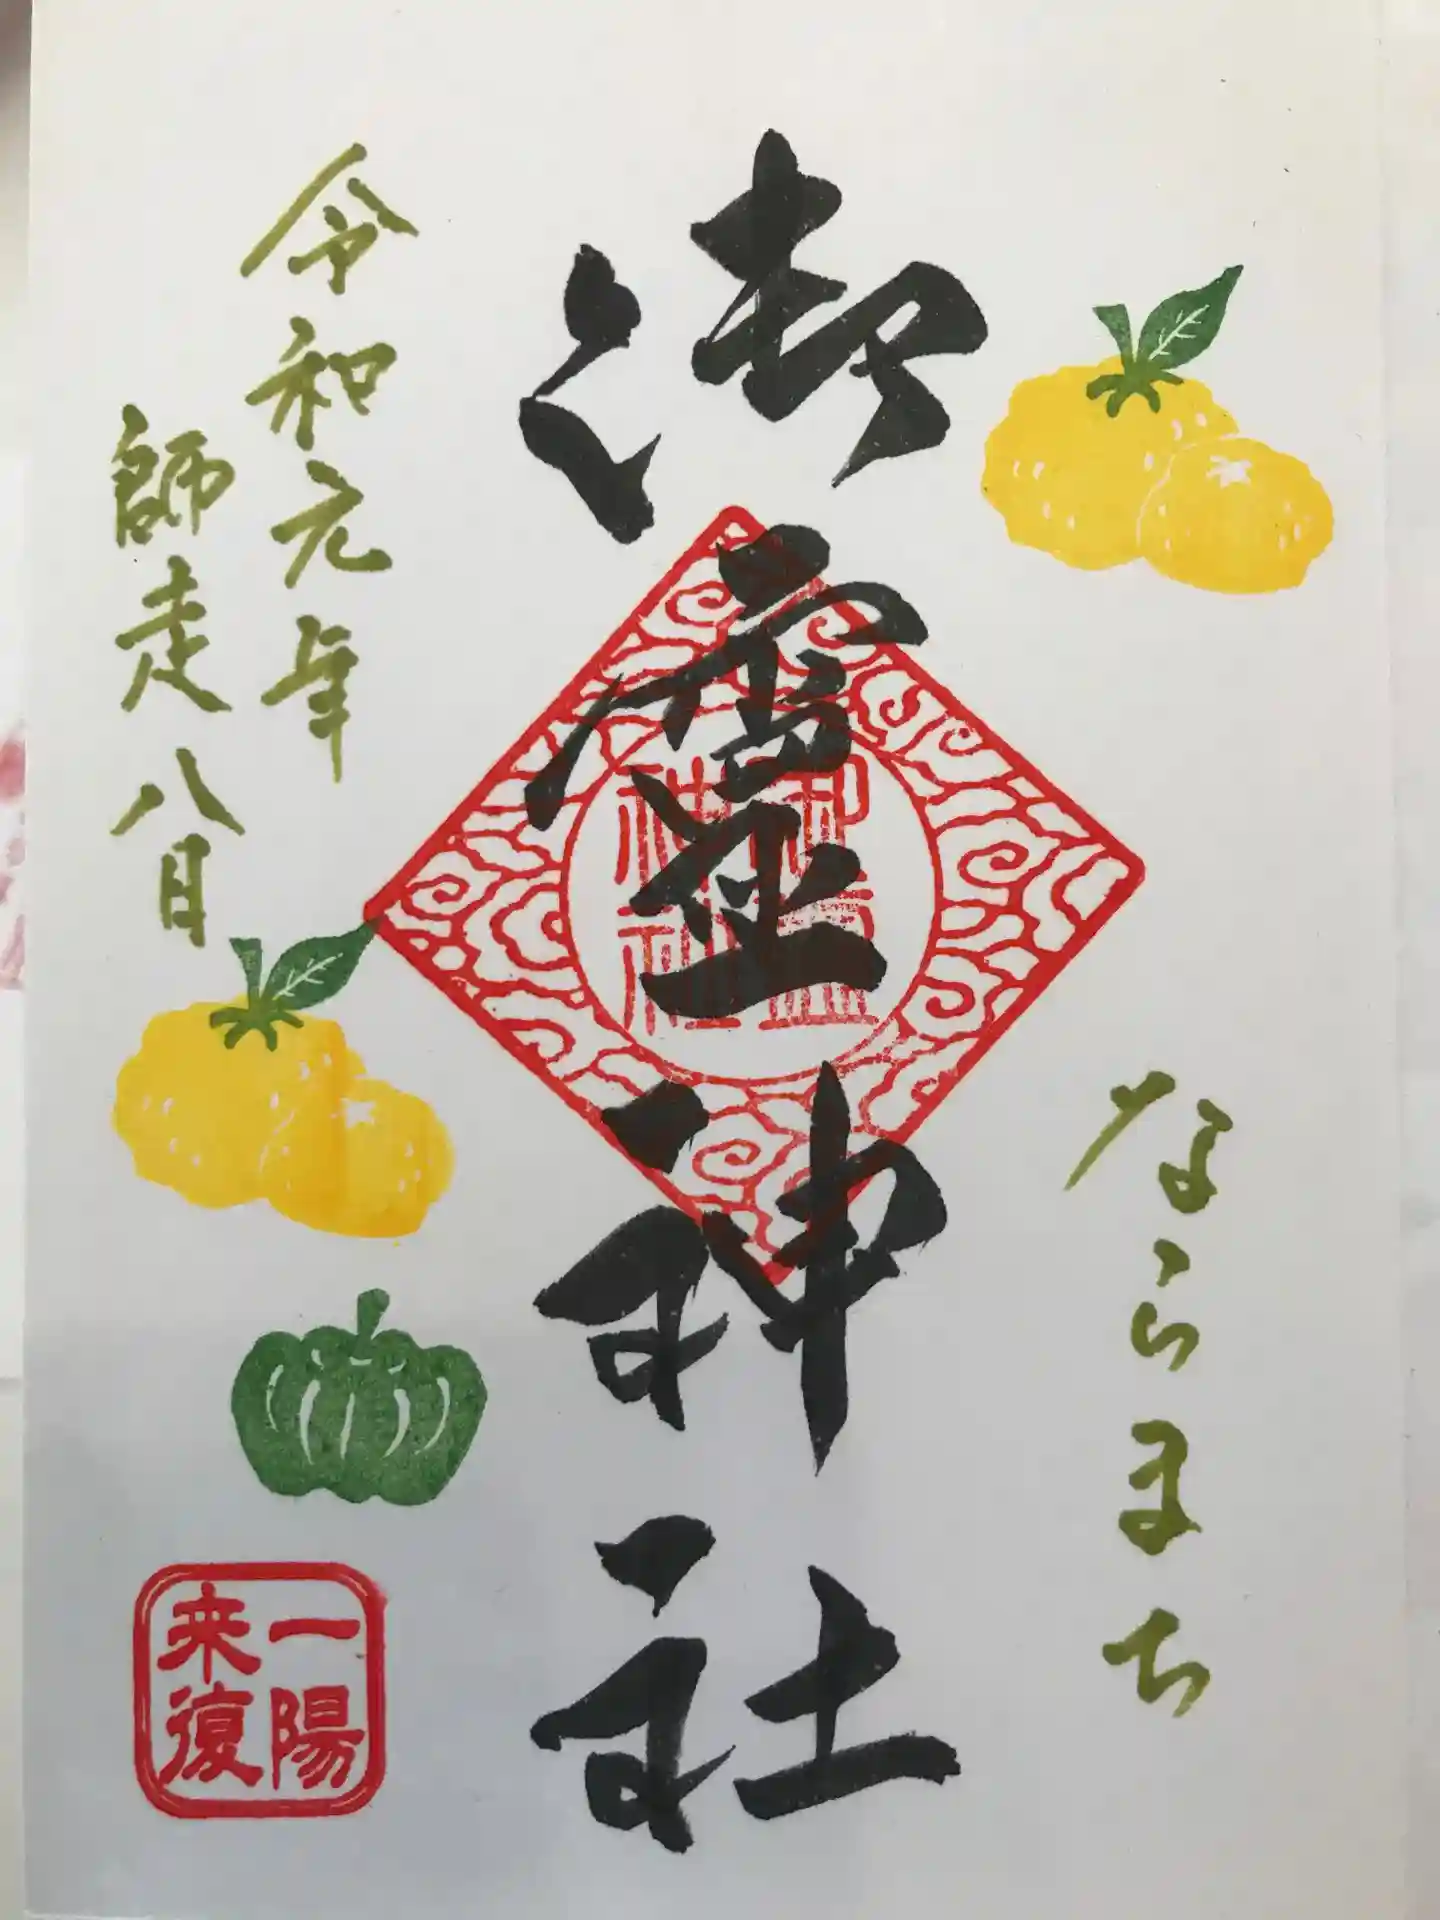 ならまち
御霊神社
令和元年
師走八日
一陽
来復